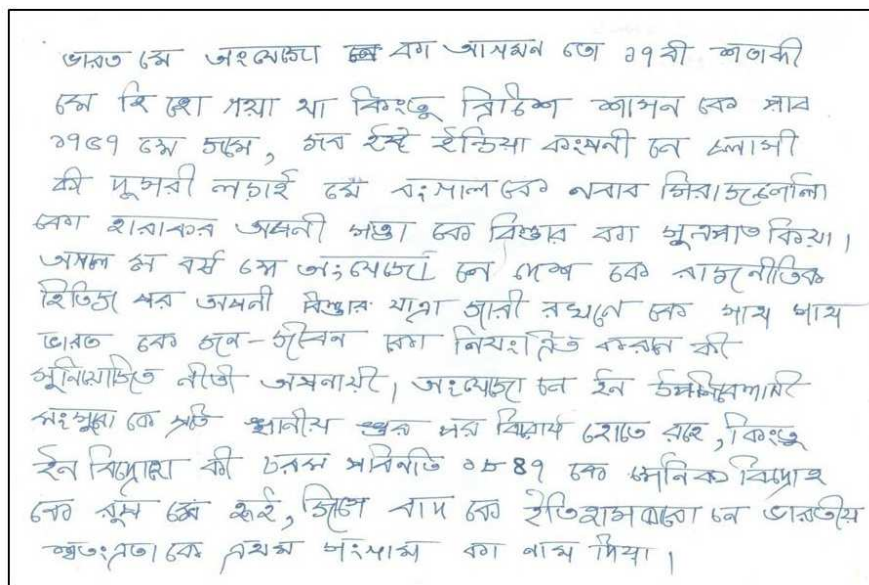 ভারত মে অংগ্রেজো কা আগমন তো ১৭বী শতাব্দী
মে হি হো গয়া থা কিংতু ব্রিটিশ শাসন কে সাব
১৭৫৭ মে জমে, জব ইস্ট ইন্ডিয়া কংপনী নে প্লাসী
কী দুসরী লড়াই মে বংগাল কে নবাব সিরাজদ্দৌলা
কো হারাকর অপনী সত্তা কে বিস্তার কা সুত্রপাত কিয়া।
অগলে ম বর্ষ মে অংগ্রেজো নে দেশ কে রাজনীতিক
ক্ষিতিজ পর অপনী বিস্তার যাত্রা জারী রখনে কে সাথ সাথ
ভারত কে জন-জীবন কো নিযংত্রিত করনে কী
সুনিয়োজিত নীতী অপনায়ী, অংগ্রেজো নে ইন উপনিবেশবাদী
কে প্রতি স্থানীয় স্তর পর বিরোধ হোতে রহে, কিংতু
ইন বিদ্রোহো কী চরম পরিনতি ১৮৪৭ কে সৈনিক বিদ্রোহ
কে রুপ মে হুই, জিসে বাদ কে ইতিহাসকারো নে ভারতীয়
স্বতংত্রতা কে প্রথম সংগ্রাম কা নাম দিয়া।